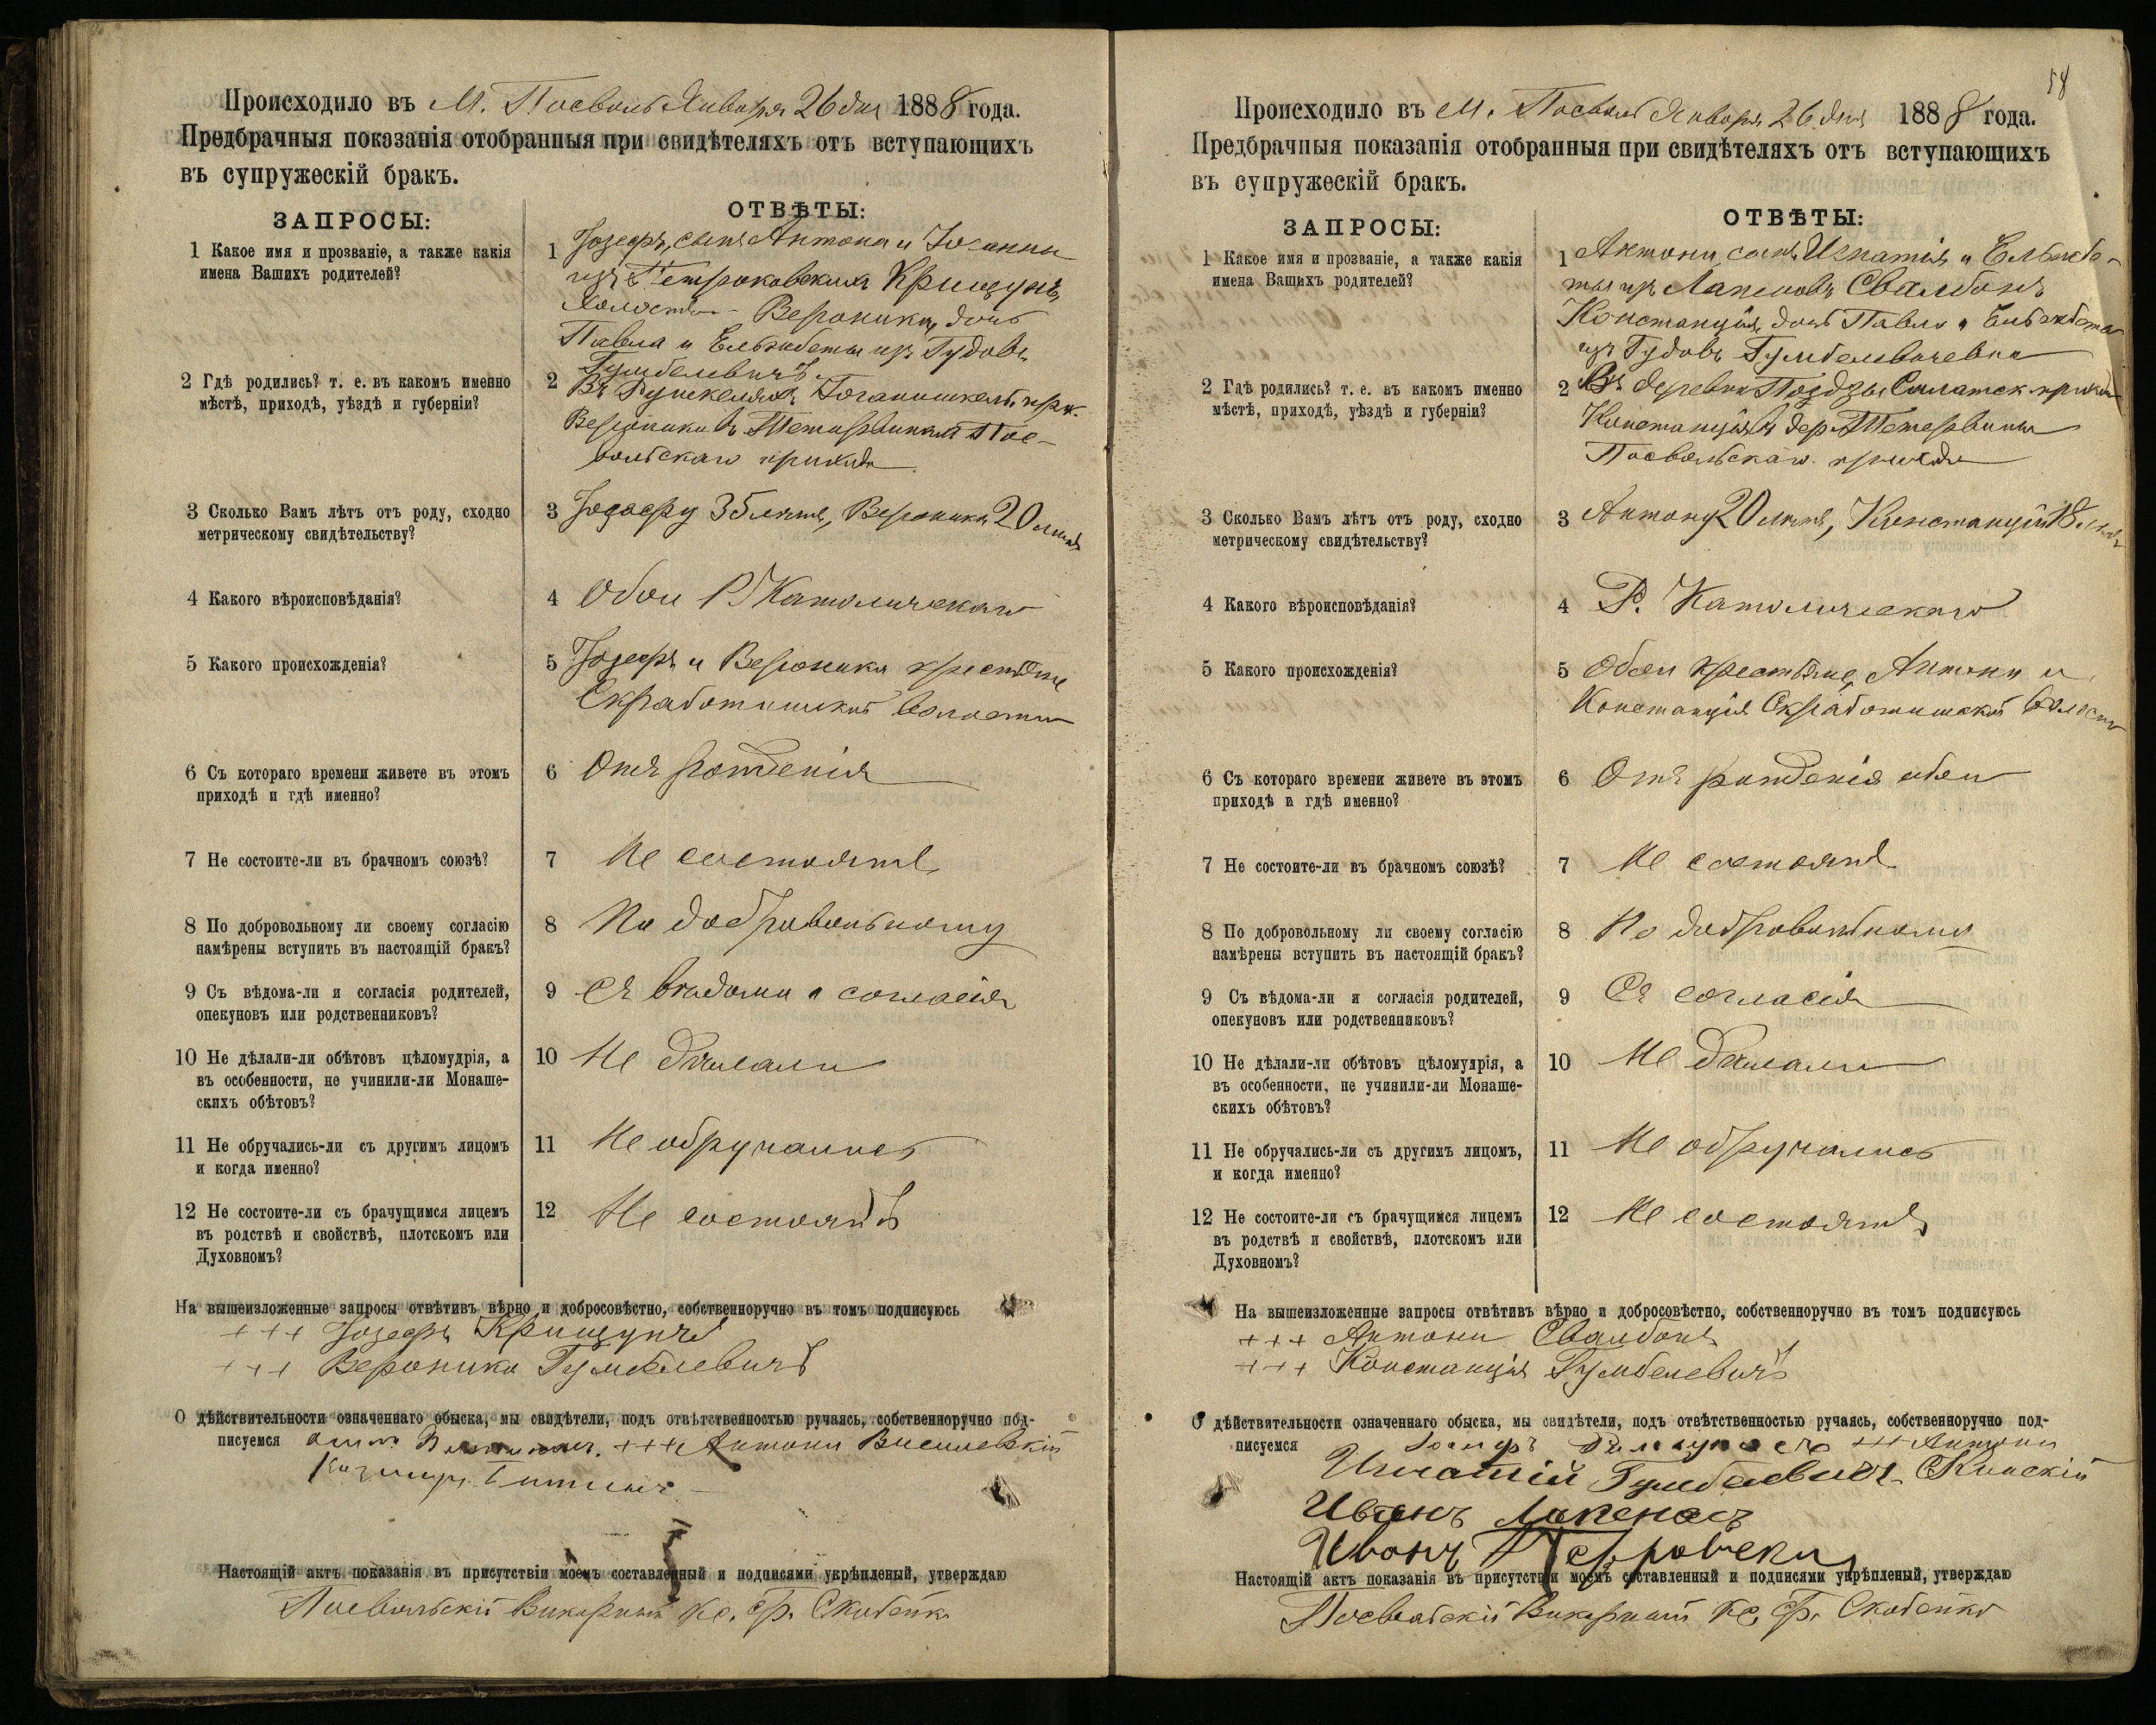 Происходило въ М. Посволь Января 26 дня 1888 года.
Предбрачныя показанія отобранныя при свидѣтеляхъ отъ вступающихъ
въ супружескій бракъ.
ЗАПРОСЫ:
ОТВѢТЫ:
1 Какое имя и прозваніе, а также какія
имена Вашихъ родителей?
1 Іозефъ, сынъ Антона и Іоанны
изъ Петроковскихъ Крищунъ,
Холостъ – Вероника, дочь
Павла и Ельжбеты изъ Гудовъ
Гумбелевичъ
2 Гдѣ родились? т. е. въ какомъ именно
мѣстѣ, приходѣ, уѣздѣ и губерніи?
2 Въ Іоганишкель. прих.
Вероника въ
Посвольскаго прихода
3 Сколько Вамъ лѣтъ отъ роду, сходно
метрическому свидѣтельству?
3 Іозефу 35 лѣтъ, Вероники 20 лѣтъ
4 Какого вѣроисповѣданія?
4 Обои Р Католическаго
5 Какого происхожденія?
5 Іозефъ и Вероника крестьяне
Скработишской волости
6 Съ котораго времени живете въ этомъ
приходѣ и гдѣ именно?
6 Отъ рожденія
7 Не состоите-ли въ брачномъ союзѣ?
7 Не состоятъ
8 По добровольному ли своему согласію
намѣрены вступить въ настоящій бракъ?
8 По добровольному
9 Съ вѣдома-ли и согласія родителей,
опекуновъ или родственниковъ?
9 Съ вѣдома и согласія
10 Не дѣлали-ли обѣтовъ цѣломудрія, а
въ особенности, не учинили-ли Монаше-
скихъ обѣтовъ?
10 Не дѣлали
11 Не обручались-ли съ другимъ лицомъ
и когда именно?
11 Не обручались
12 Не состоите-ли съ брачущимся лицемъ
въ родствѣ и свойствѣ, плотскомъ или
Духовномъ?
12 Не состоятъ
На вышеизложенные запросы отвѣтивъ вѣрно и добросовѣстно, собственноручно въ томъ подписуюсь
+++ Іозефъ Крищунъ
+++ Вероника Гумбелевичъ
О дѣйствительности означеннаго обыска, мы свидѣтели, подъ отвѣтственностью ручаясь, собственноручно под-
писуемся +++ Антони Василевскій
Казимиръ
Настоящій актъ показанія въ присутствіи моемъ составленный и подписями укрѣпленый, утверждаю
Посвольскій Викарный Кс. Фр. Скобейко
58
Происходило въ М. Посволь Января 26 дня 1888 года.
Предбрачныя показанія отобранныя при свидѣтеляхъ отъ вступающихъ
въ супружескій бракъ.
ЗАПРОСЫ:
ОТВѢТЫ:
1 Какое имя и прозваніе, а также какія
имена Вашихъ родителей?
1 Антони, сынъ Игнатія и Ельжбе-
ты изъ Лапеновъ Свалбонъ
Констанція, дочь Павла и Ельжбеты
изъ Гудовъ Гумбелевичевна
2 Гдѣ родились? т. е. въ какомъ именно
мѣстѣ, приходѣ, уѣздѣ и губерніи?
2 Въ деревни Салатск. прихода
Констанція въ дер.
Посвольскаго прихода
3 Сколько Вамъ лѣтъ отъ роду, сходно
метрическому свидѣтельству?
3 Антону 20 лѣтъ, Констанціи 18 лѣтъ
4 Какого вѣроисповѣданія?
4 Р. Католическаго
5 Какого происхожденія?
5 Обои крестьяне, Антони и
Констанція Скработишской волости
6 Съ котораго времени живете въ этомъ
приходѣ и гдѣ именно?
6 Отъ рожденія обои
7 Не состоите-ли въ брачномъ союзѣ?
7 Не состоятъ
8 По добровольному ли своему согласію
намѣрены вступить въ настоящій бракъ?
8 По добровольному
9 Съ вѣдома-ли и согласія родителей,
опекуновъ или родственниковъ?
9 Съ согласія
10 Не дѣлали-ли обѣтовъ цѣломудрія, а
въ особенности, не учинили-ли Монаше-
скихъ обѣтовъ?
10 Не дѣлали
11 Не обручались-ли съ другимъ лицомъ,
и когда именно?
11 Не обручались
12 Не состоите-ли съ брачущимся лицемъ
въ родствѣ и свойствѣ, плотскомъ или
Духовномъ?
12 Не состоятъ
На вышеизложенные запросы отвѣтивъ вѣрно и добросовѣстно, собственноручно въ томъ подписуюсь
+++ Антони Свалбонъ
+++ Констанція Гумбелевичъ
О дѣйствительности означеннаго обыска, мы свидѣтели, подъ отвѣтственностью ручаясь, собственноручно под-
писуемся +++ Антони
Игнатій Гумбелевичъ
Иванъ Лапенасъ
Иванъ Петровски
Настоящій актъ показанія въ присутствіи моемъ составленный и подписями укрѣпленый, утверждаю
Посвольскій Викарный Кс. Фр. Скобейко